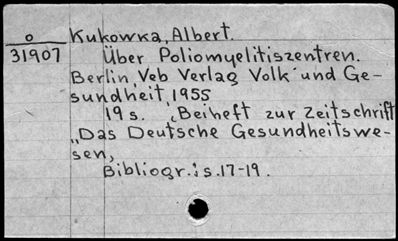 o
31907
Kukowka, Albert.
Über Poliomyelitiszentren.
Berlin, Veb Verlag Volk und Ge-
sundheit, 1955
19 s. „Beiheft zur Zeitschrift
„Das Deutsche Gesundheitswe-
sen,
Bibliogr.: s. 17-19.